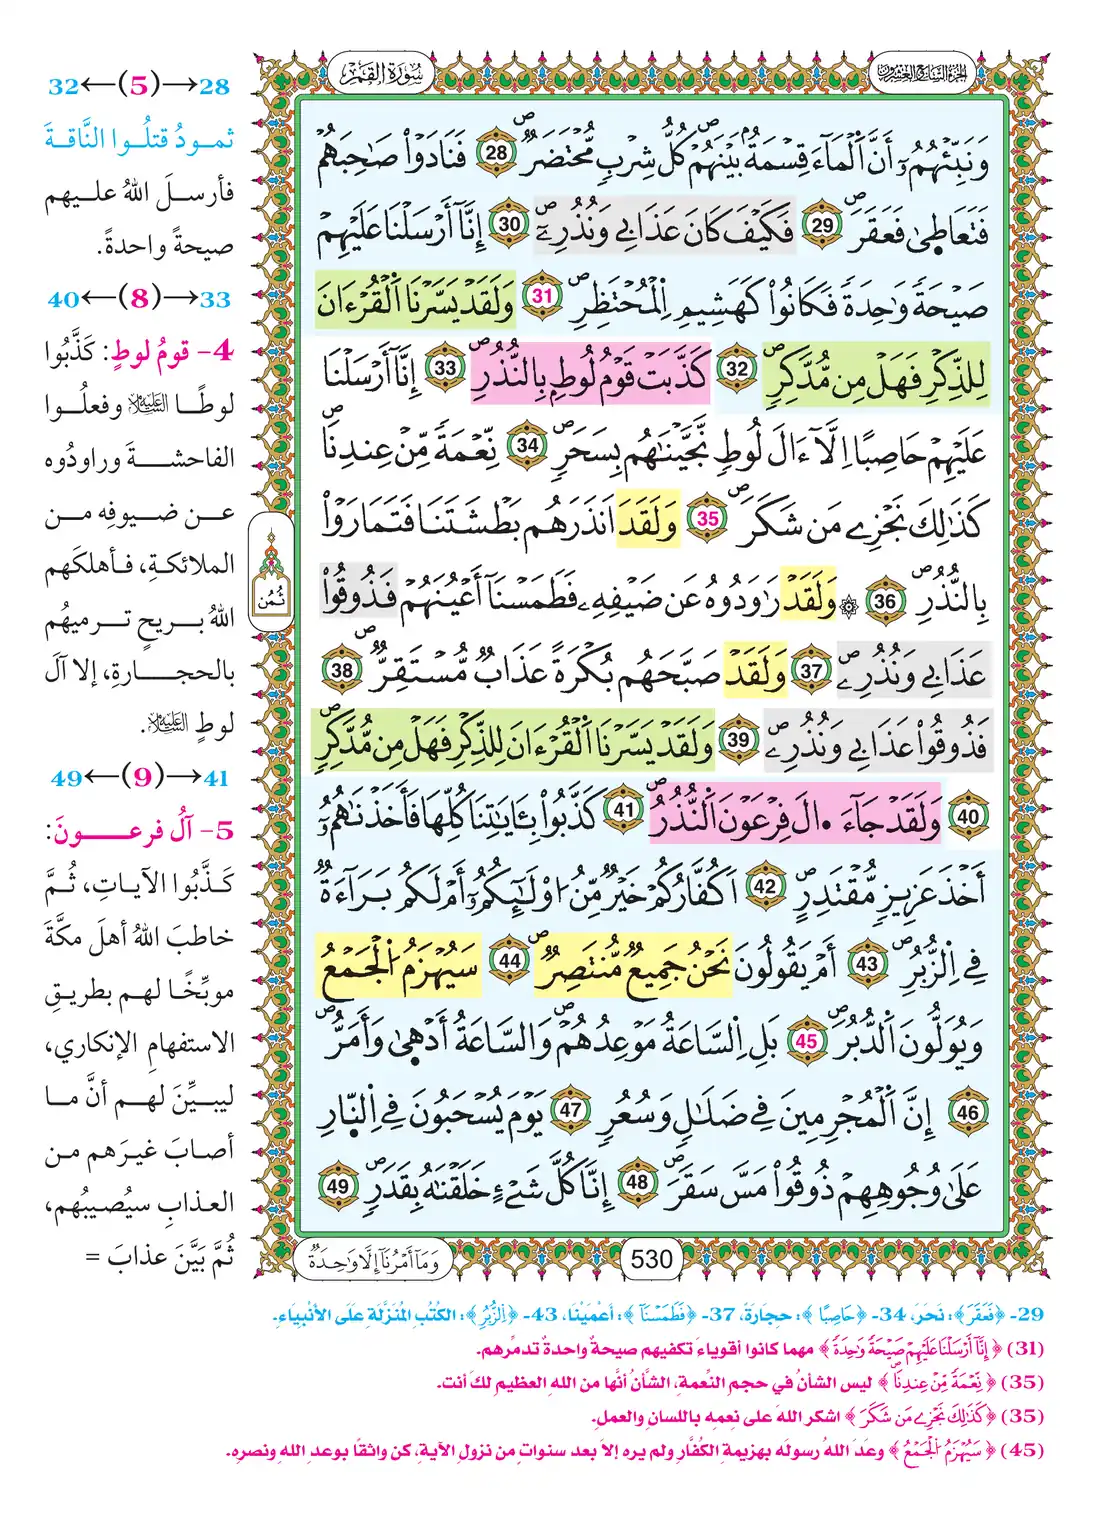 الجزء السابع والعشرون
سورة القمر
وَنَبِّئْهُمُۥٓ أَنَّ اَ۬لْمَآءَ قِسْمَةُۢ بَيْنَهُمْ كُلُّ شِرْبٖ مُّحْتَضَرٞۖ 28 فَنَادَوْاْ صَٰحِبَهُمْ
فَتَعَاط۪يٰ فَعَقَرَۖ 29 فَكَيْفَ كَانَ عَذَابِے وَنُذُرِۦٓۖ 30 إِنَّآ أَرْسَلْنَا عَلَيْهِمْ
صَيْحَةٗ وَٰحِدَةٗ فَكَانُواْ كَهَشِيمِ اِ۬لْمُحْتَظِرِۖ 31 وَلَقَدْ يَسَّرْنَا اَ۬لْقُرْءَانَ
لِلذِّكْرِ فَهَلْ مِن مُّدَّكِرٖۖ 32 كَذَّبَتْ قَوْمُ لُوطِۢ بِالنُّذُرِۖ 33 إِنَّآ أَرْسَلْنَا
عَلَيْهِمْ حَاصِباً اِلَّآ ءَالَ لُوطٖ نَّجَّيْنَٰهُم بِسَحَرٖۖ 34 نِّعْمَةٗ مِّنْ عِندِنَاۖ
كَذَٰلِكَ نَجْزِے مَن شَكَرَۖ 35 وَلَقَدَ اَنذَرَهُم بَطْشَتَنَا فَتَمَارَوْاْ
بِالنُّذُرِۖ 36 ۞ وَلَقَدْ رَٰوَدُوهُ عَن ضَيْفِهِۦ فَطَمَسْنَآ أَعْيُنَهُمْ فَذُوقُواْ
عَذَابِے وَنُذُرِۦٓۖ 37 وَلَقَدْ صَبَّحَهُم بُكْرَةً عَذَابٞ مُّسْتَقِرّٞۖ 38
فَذُوقُواْ عَذَابِے وَنُذُرِۦٓۖ 39 وَلَقَدْ يَسَّرْنَا اَ۬لْقُرْءَانَ لِلذِّكْرِ فَهَلْ مِن مُّدَّكِرٖۖ
40 وَلَقَدْ جَآءَ الَ فِرْعَوْنَ اَ۬لنُّذُرُۖ 41 كَذَّبُواْ بِـَٔايَٰتِنَا كُلِّهَا فَأَخَذْنَٰهُمُۥٓ
أَخْذَ عَزِيزٖ مُّقْتَدِرٍۖ 42 اَكُفَّارُكُمْ خَيْرٞ مِّنُ ا۟وْلَٰٓئِكُمُۥٓ أَمْ لَكُم بَرَآءَةٞ
فِے اِ۬لزُّبُرِۖ 43 أَمْ يَقُولُونَ نَحْنُ جَمِيعٞ مُّنتَصِرٞۖ 44 سَيُهْزَمُ اُ۬لْجَمْعُ
وَيُوَلُّونَ اَ۬لدُّبُرَۖ 45 بَلِ اِ۬لسَّاعَةُ مَوْعِدُهُمْۖ وَالسَّاعَةُ أَدْه۪يٰ وَأَمَرُّۖ
46 إِنَّ اَ۬لْمُجْرِمِينَ فِے ضَلَٰلٖ وَسُعُرٖ 47 يَوْمَ يُسْحَبُونَ فِے اِ۬لنّ۪ارِ
عَلَىٰ وُجُوهِهِمْ ذُوقُواْ مَسَّ سَقَرَۖ 48 إِنَّا كُلَّ شَےْءٍ خَلَقْنَٰهُ بِقَدَرٖۖ 49
530
وَمَآ أَمْرُنَآ إِلَّا وَٰحِدَةٞ
ثُمُن
28→(5)←32
ثمودُ قتلُوا النَّاقةَ
فأرسلَ اللهُ عليهم
صيحةً واحدةً.
33→(8)←40
4- قومُ لوطٍ: كَذَّبُوا
لوطًا عليه السلام وفعلُوا
الفاحشةَ وراودُوه
عن ضيوفِه من
الملائكةِ، فأهلكَهم
اللهُ بريحٍ ترميهُم
بالحجارةِ، إلا آلَ
لوطٍ عليه السلام.
41→(9)←49
5- آلُ فرعونَ:
كَذَّبُوا الآياتِ، ثُمَّ
خاطبَ اللهُ أهلَ مكَّةَ
موبِّخًا لهم بطريقِ
الاستفهامِ الإنكاري،
ليبيِّنَ لهم أنَّ ما
أصابَ غيرَهم من
العذابِ سيُصيبُهم،
ثُمَّ بَيَّنَ عذابَ =
29- ﴿فَعَقَرَ﴾: نَحَرَ، 34- ﴿حَاصِبًا﴾: حِجَارَةً، 37- ﴿فَطَمَسْنَآ﴾: أعْمَيْنَا، 43- ﴿اِ۬لزُّبُرِ﴾: الكُتُبِ المُنَزَّلَةِ عَلَى الأنْبِيَاءِ.
(31) ﴿إِنَّآ أَرْسَلْنَا عَلَيْهِمْ صَيْحَةٗ وَٰحِدَةٗ﴾ مهما كانوا أقوياءَ تكفيهم صيحةٌ واحدةٌ تدمِّرهم.
(35) ﴿نِّعْمَةٗ مِّنْ عِندِنَاۖ﴾ ليس الشأنُ في حجمِ النِّعمةِ، الشَّأنُ أنَّها من اللهِ العظيمِ لكَ أنت.
(35) ﴿كَذَٰلِكَ نَجْزِے مَن شَكَرَ﴾ اشكر اللهَ على نعمِه باللسانِ والعملِ.
(45) ﴿سَيُهْزَمُ اُ۬لْجَمْعُ﴾ وعدَ اللهُ رسولَه بهزيمةِ الكفَّارِ ولم يره إلا بعد سنواتٍ من نزولِ الآيةِ، كن واثقًا بوعدِ اللهِ ونصرِه.